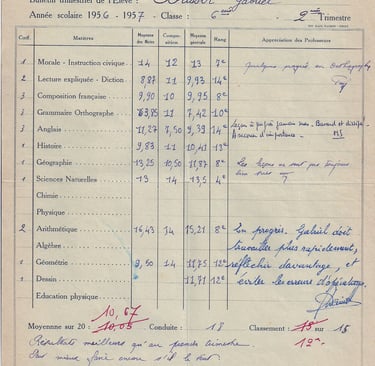 Bulletin trimestriel de l'Élève : Gabriel
Année scolaire 1956 - 1957 - Classe : 6 2 Trimestre
Coef. Matières Moyenne des Notes Compo- sition Moyenne générale Rang Appréciation des Professeurs
1 Morale - Instruction civique 14 12 13 7e
2 Lecture expliquée - Diction 8,87 11 9,93 14e
2 Composition française 9,90 10 9,95 8e
2 Grammaire Orthographe 3,85 11 7,42 10e
3 Anglais 11,27 7,50 9,39 14e
1 Histoire 9,83 11 10,41 13e
1 Géographie 13,25 10,50 11,87 8e
1 Sciences Naturelles 13 14 13,5 4e
Chimie
Physique
2 Arithmétique 16,43 14 15,21 8e
Algèbre
1 Géométrie 9,50 14 11,75 12e
Dessin 11,71 12e
Education physique
quelques progrès en orthographe
Bavard et
Les leçons ne sont pas toujours
bien sues
En progrès. Gabriel doit
travailler plus rapidement,
réfléchir davantage, et
éviter les erreurs d'opération.
10,67
Moyenne sur 20 : 10,05 Conduite : 18 Classement : 13 sur 15
12e
Résultats meilleurs qu'au premier trimestre.
mieux faire encore s'il le veut.